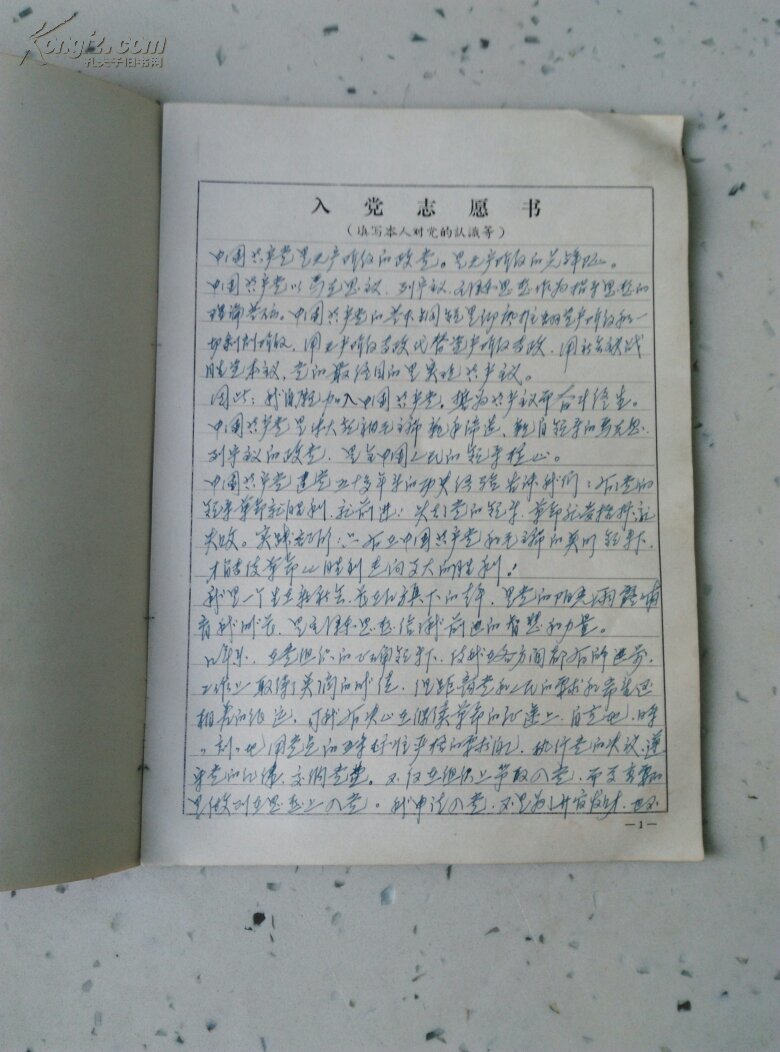 Kongfz.com
孔夫子旧书网
入党志愿书
（填写本人对党的认识等）
中国共产党是无产阶级的政党。是无产阶级的先锋队。
中国共产党以马克思主义、列宁主义、毛泽东思想作为指导思想的
理论基础。中国共产党的基本纲领是彻底推翻资产阶级和一
切剥削阶级，用无产阶级专政代替资产阶级专政，用社会主义战
胜资本主义，党的最终目的是实现共产主义。
因此：我自愿加入中国共产党，愿为共产主义而奋斗终生。
中国共产党是伟大领袖毛主席亲手缔造、亲自领导的马克思、
列宁主义的政党，是全中国人民的领导核心。
中国共产党建党五十多年来的历史经验告诉我们：有了党的
领导革命就胜利，就前进；失去党的领导，革命就受挫折，就
失败。实践证明：只有在中国共产党和毛主席的英明领导下，
才能使革命从胜利走向更大的胜利！
我是一个生在新社会、长在红旗下的青年，是党的阳光雨露哺
育我成长，是毛泽东思想给我前进的智慧和力量。
几年来，在党组织的正确领导下，使我在各方面都有所进步，
工作上取得了的成绩，但距离党和人民的要求和希望还
相差的很远，我有决心在继续革命的征途上，自觉地、时
刻地用党员的五条标准严格的要求自己，执行党的决议，遵
守党的纪律，交纳党费。不仅在组织上争取入党，而更重要的
是做到在思想上入党。我申请入党，不是为升官发财，也不
—1—